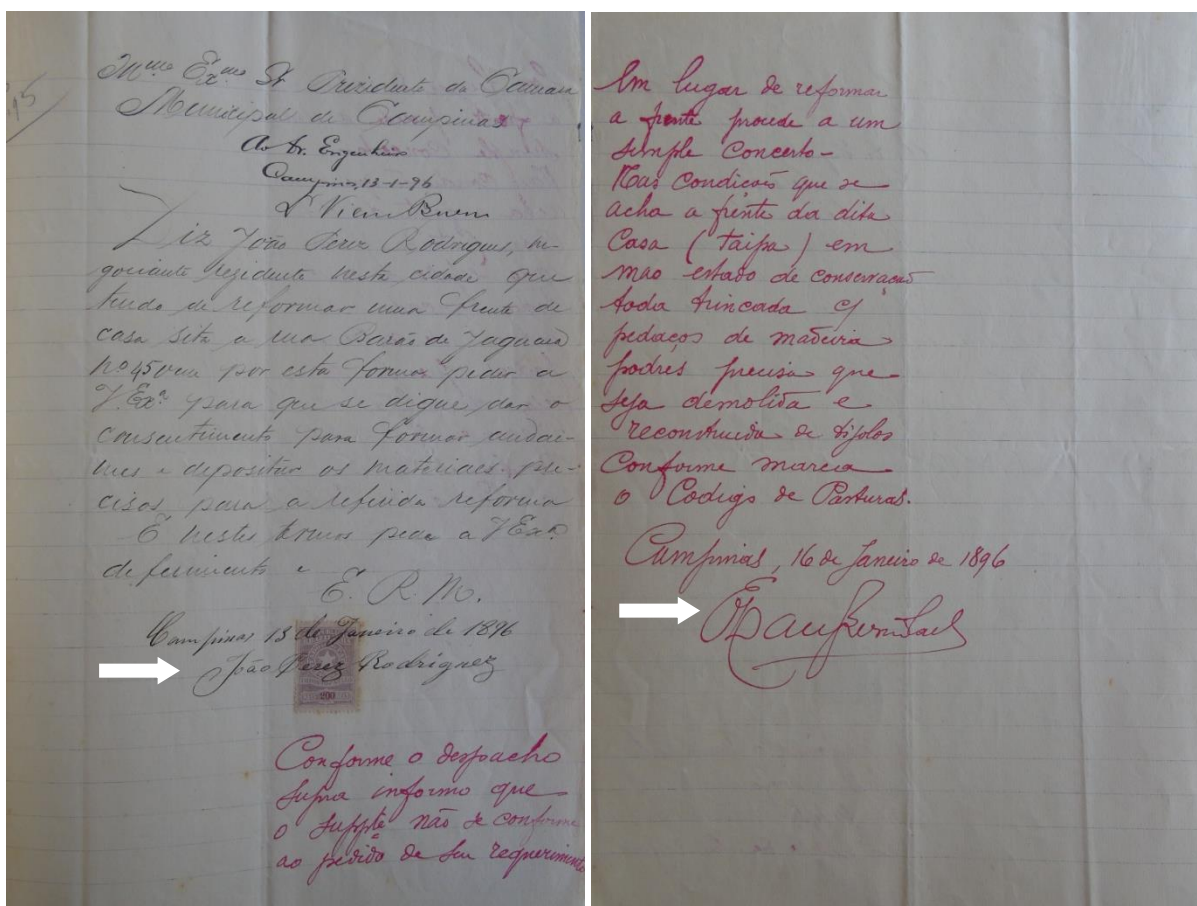 Mmo Exmo Sr Prezidente da Camara
Municipal de Campinas
Ao Dr. Engenheiro
Campinas, 13-1-96
Diz João Perez Rodrigues, ne-
gociante rezidente nesta cidade que
tendo de reformar uma frente de
casa sita a rua Barão de Jaguara
nº 45 vem por esta forma pedir a
V. Exª para que se digne dar o
consentimento para formar andai-
mes e depositar os materiaes pre-
cisos para a referida reforma
E nestes termos pede a V Exª
deferimento e
E. R. M.
Campinas 13 de Janeiro de 1896
João Perez Rodriguez
200
Conforme o despacho
supra informo que
o suppte não se conforme
ao pedido de seu requerimento
Em lugar de reformar
a frente procede a um
simple concerto-
Nas condicois que se
acha a frente da dita
Casa (taipa) em
mao estado de conservação
toda trincada c/
pedaços de madeira
podres precisa que
seja demolida e
reconstruida de tijolos
Conforme marca
o Codigo de Posturas.
Campinas, 16 de Janeiro de 1896